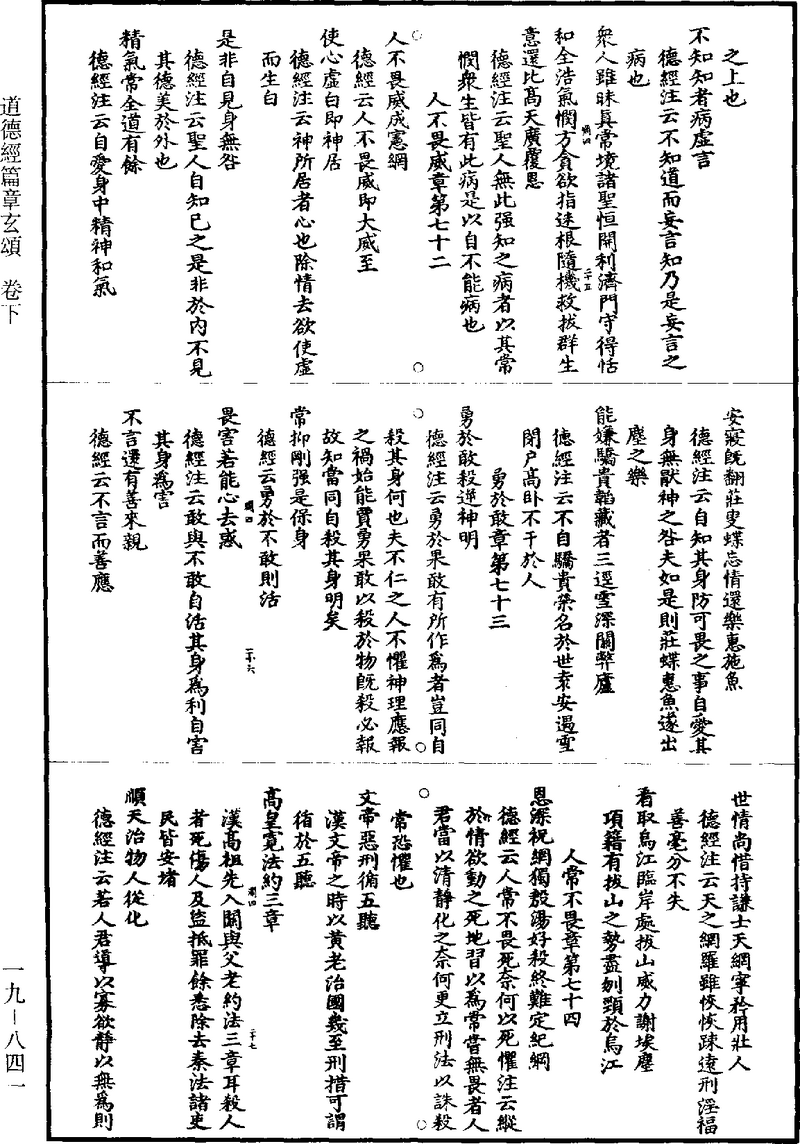 道德經篇章玄頌　卷下
之上也
不知知者病虛言
德經注云不知道而妄言知乃是妄言之
病也
衆人雖昧真常境諸聖恒開利濟門守得恬
和全浩氣憫方貪欲指迷根隨機救拔群生
意還比高天廣覆恩
德經注云聖人無此强知之病者以其常
憫衆生皆有此病是以自不能病也
人不畏威章第七十二
人不畏威成憲網
德經云人不畏威即大威至
使心虛白即神居
德經注云神所居者心也除情去欲使虛
而生白
是非自見身無咎
德經注云聖人自知己之是非於內不見
其德美於外也
精氣常全道有餘
德經注云自愛身中精神和氣
安寢旣翻莊叟蝶忘情還樂惠施魚
德經注云自知其身防可畏之事自愛其
身無猒神之咎夫如是則莊蝶惠魚遂出
塵之樂
能嫌驕貴韜藏者三逕雪深關弊廬
德經注云不自驕貴榮名於世袁安遇雪
閉户高卧不干於人
勇於敢章第七十三
勇於敢殺逆神明
德經注云勇於果敢有所作爲者豈同自
殺其身何也夫不仁之人不懼神理應報
之禍始能賈勇果敢以殺於物旣殺必報
故知當同自殺其身明矣
常抑剛强是保身
德經云勇於不敢則活
畏害若能心去惑
德經注云敢與不敢自活其身爲利自害
其身爲害
不言還有善來親
德經云不言而善應
世情尚惜持謙士天網寧矜用壯人
德經注云天之網羅雖恢恢踈遠刑淫福
善毫分不失
看取烏江臨岸處拔山威力謝埃塵
項籍有拔山之勢盡刎頸於烏江
人常不畏章第七十四
恩深祝網獨殷湯好殺終難定紀綱
德經云人常不畏死奈何以死懼注云縱
於情欲動之死地習以爲常當無畏者人
君當以清静化之奈何更立刑法以誅殺
常恐懼也
文帝惡刑脩五聽
漢文帝之時以黃老治國幾至刑措可謂
循於五聽
高皇寬法約三章
漢高祖先入關與父老約法三章耳殺人
者死傷人及盜抵罪餘悉除去秦法諸吏
民皆安堵
順天治物人從化
德經注云若人君導以寡欲静以無爲則
一九－八四一